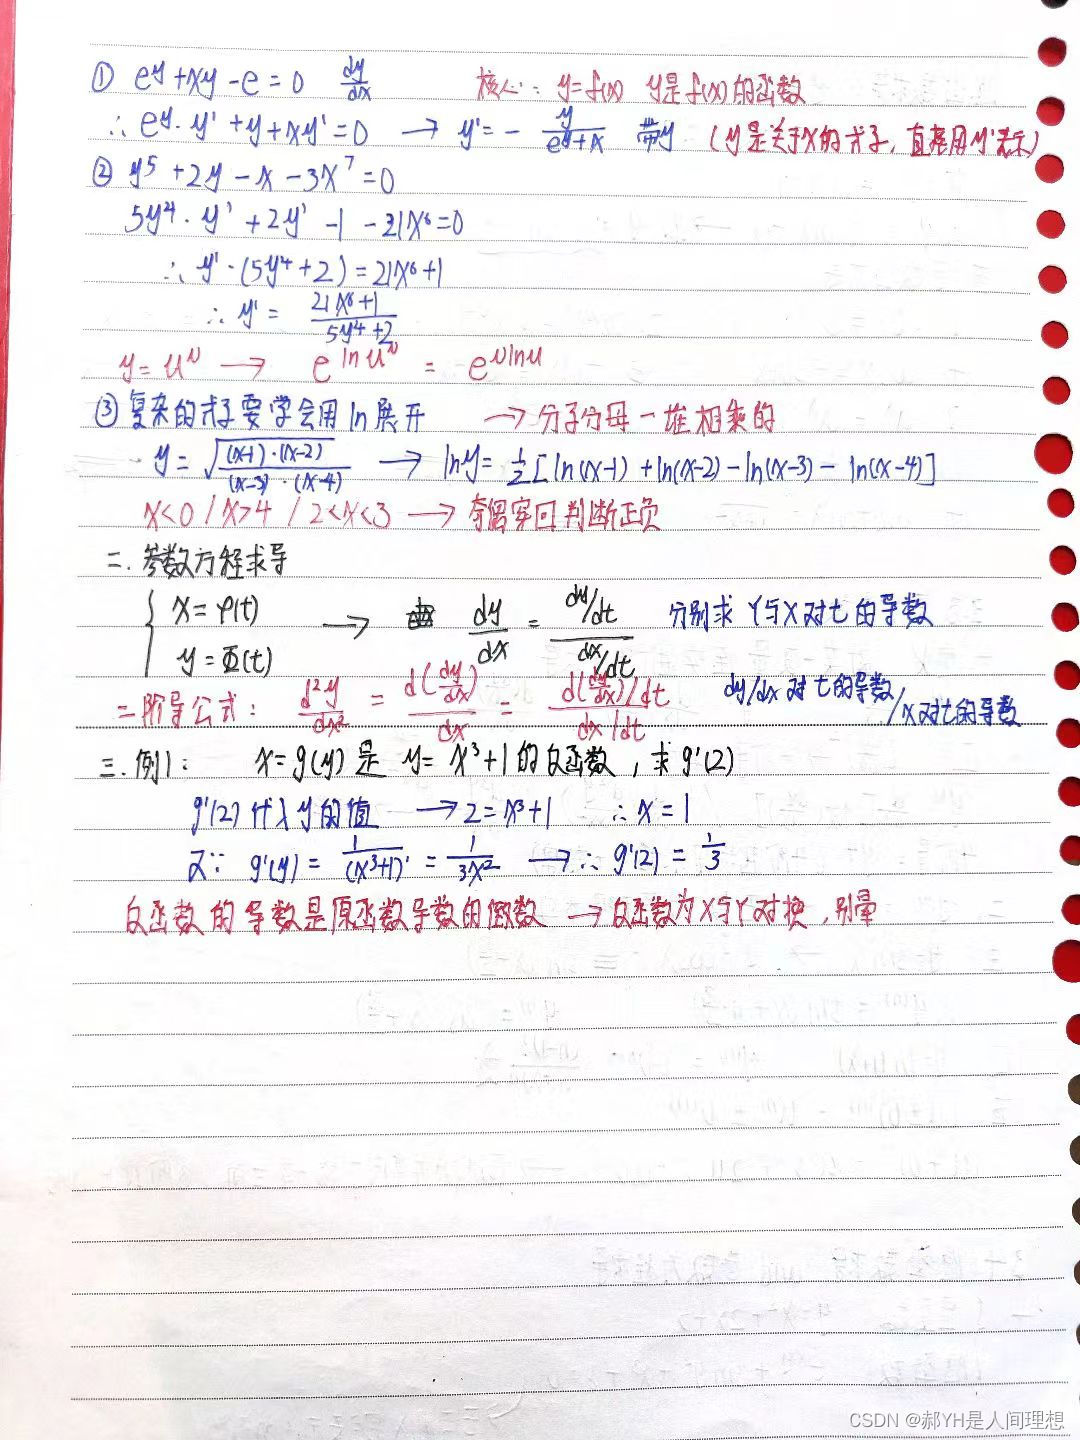 ① e^y + xy - e = 0   dy/dx   核心: y=f(x) y是f(x)的函数
∴ e^y · y' + y + xy' = 0 → y' = - y/(e^y+x) 带y (y是关于x的式子,直接用y'表示)
② y^5 + 2y - x - 3x^7 = 0
5y^4 · y' + 2y' - 1 - 21x^6 = 0
∴ y' · (5y^4 + 2) = 21x^6 + 1
∴ y' = (21x^6+1)/(5y^4+2)
y = u^v → e^{ln u^v} = e^{v ln u}
③ 复杂的式子要学会用ln展开 → 分子分母一堆相乘的
y = √((x-1)·(x-2)/(x-3)·(x-4)) → lny = 1/2[ln(x-1) + ln(x-2) - ln(x-3) - ln(x-4)]
x<0 / x>4 / 2<x<3 → 奇偶穿回判断正负
二. 参数方程求导
{ x = φ(t) → dy/dx = (dy/dt)/(dx/dt) 分别求Y与X对t的导数
y = Φ(t)
二阶导公式: d²y/dx² = d(dy/dx)/dx = (d(dy/dx)/dt)/(dx/dt) dy/dx对t的导数/x对t的导数
三. 例1: x = g(y) 是 y = x³+1 的反函数, 求g'(2)
g'(2) 代入y的值 → 2 = x³+1 ∴ x = 1
又∵ g'(y) = 1/(x³+1)' = 1/3x² → ∴ g'(2) = 1/3
反函数的导数是原函数导数的倒数 → 反函数为X与Y对换,别晕
CSDN @郝YH是人间理想